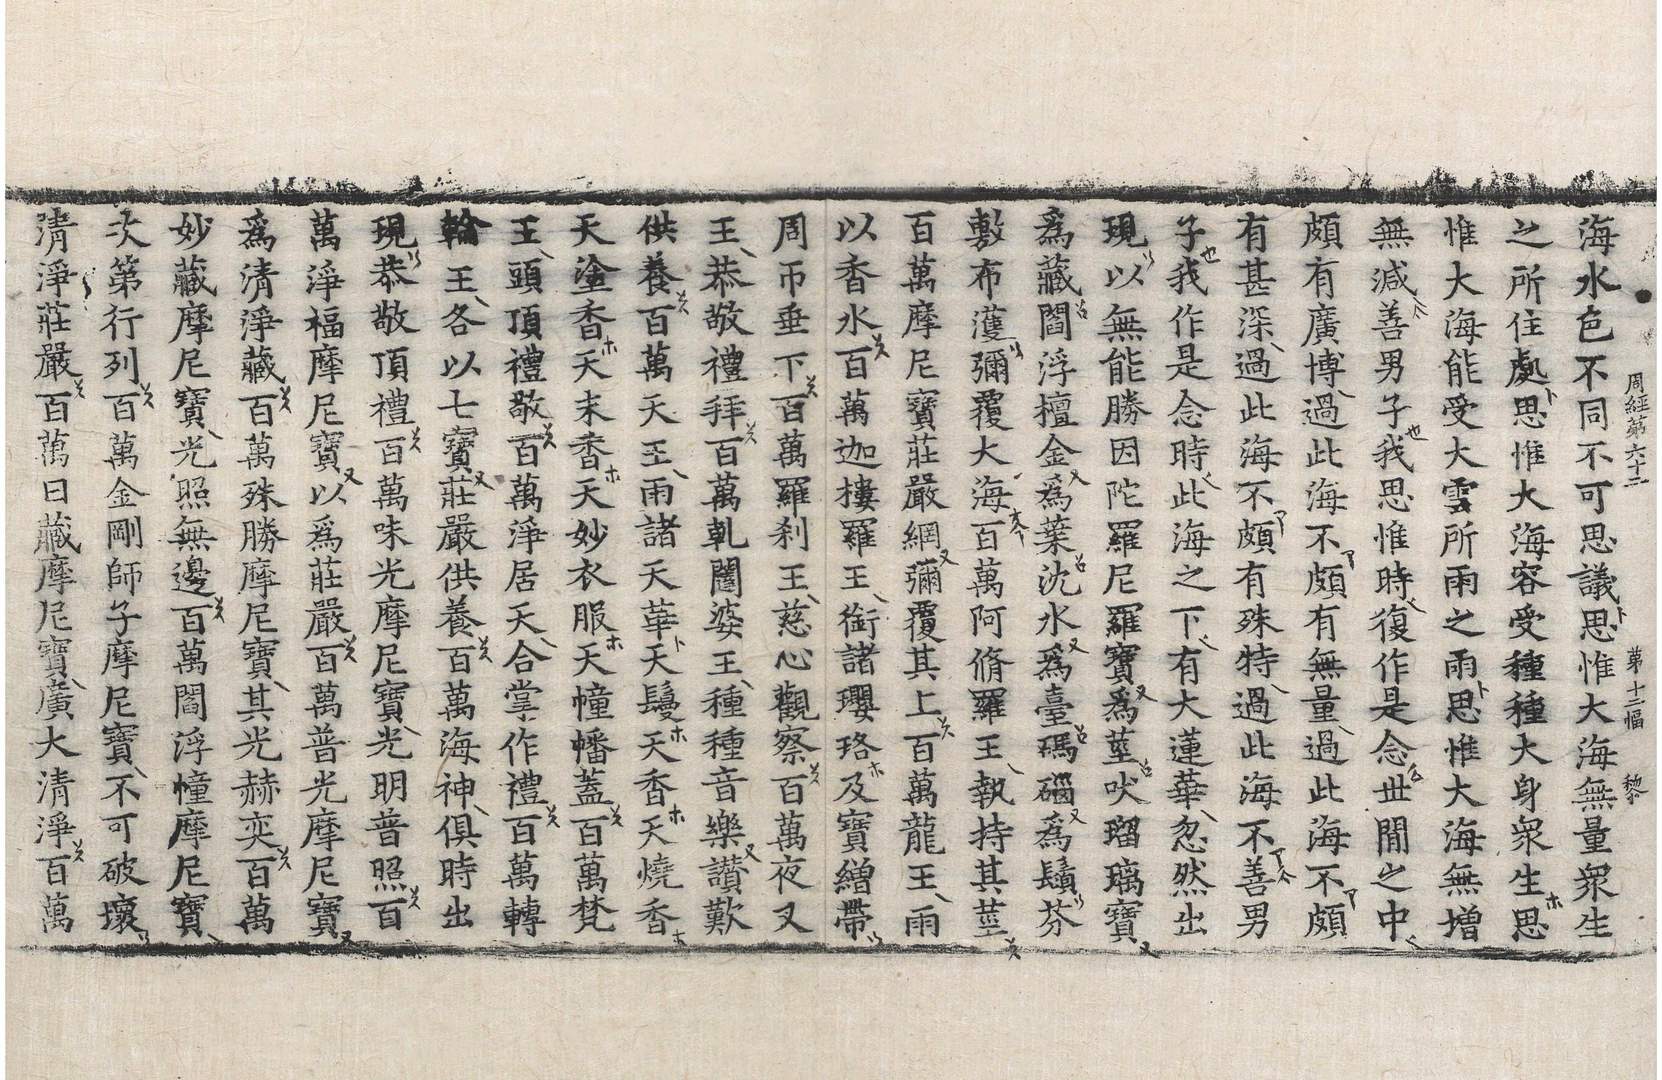 周經第六十三 第十三幅 黎
海水色不同不可思議思惟大海無量眾生
之所住處思惟大海容受種種大身眾生思
惟大海能受大雲所雨之雨思惟大海無增
無減善男子我思惟時復作是念世閒之中
頗有廣博過此海不頗有無量過此海不頗
有甚深過此海不頗有殊特過此海不善男
子我作是念時此海之下有大蓮華忽然出
現以無能勝因陀羅尼羅寶爲莖吠瑠璃寶
爲藏閻浮檀金爲葉沈水爲臺碼碯爲鬚芬
敷布濩彌覆大海百萬阿脩羅王執持其莖
百萬摩尼寶莊嚴網彌覆其上百萬龍王雨
以香水百萬迦樓羅王銜諸瓔珞及寶繒帶
周帀垂下百萬羅刹王慈心觀察百萬夜叉
王恭敬禮拜百萬乹闥婆王種種音樂讚歎
供養百萬天王雨諸天華天鬘天香天燒香
天塗香天末香天妙衣服天幢幡蓋百萬梵
王頭頂禮敬百萬淨居天合掌作禮百萬轉
輪王各以七寶莊嚴供養百萬海神俱時出
現恭敬頂禮百萬味光摩尼寶光明普照百
萬淨福摩尼寶以爲莊嚴百萬普光摩尼寶
爲清淨藏百萬殊勝摩尼寶其光赫奕百萬
妙藏摩尼寶光照無邊百萬閻浮幢摩尼寶
次第行列百萬金剛師子摩尼寶不可破壞
清淨莊嚴百萬日藏摩尼寶廣大清淨百萬